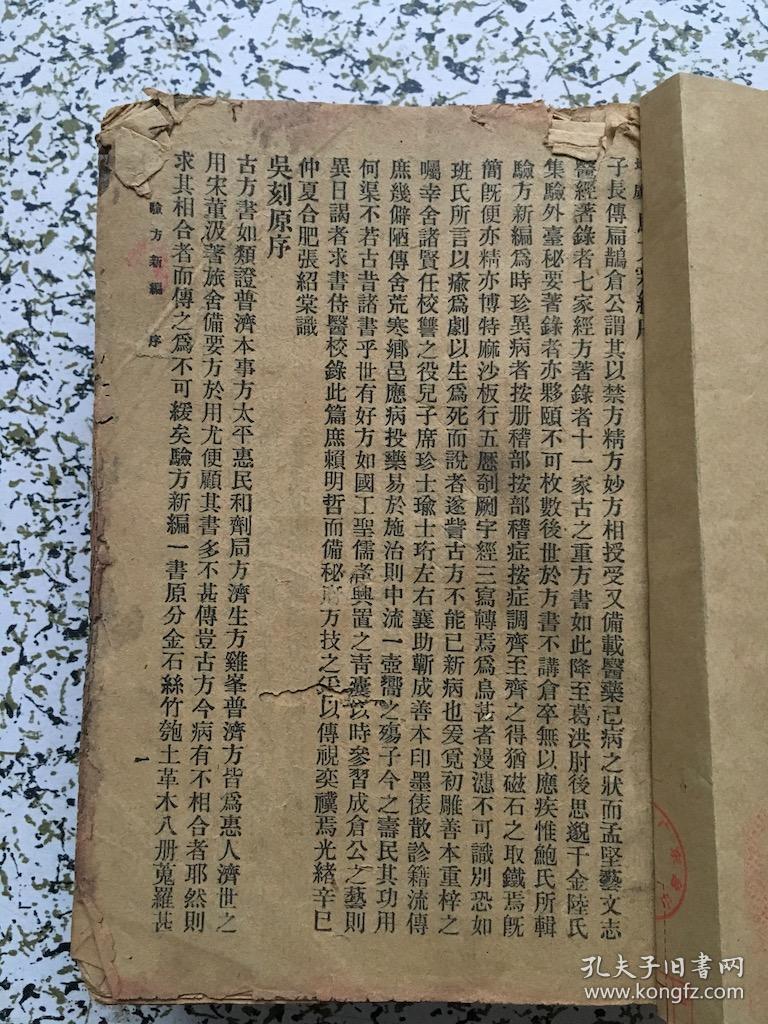 子長傳扁鵲倉公謂其以禁方精方妙方相授受又備載醫藥已病之狀而孟堅藝文志
醫經著錄者七家經方著錄者十一家古之重方書如此降至葛洪肘後思邈千金陸氏
集驗外臺秘要著錄者亦夥頤不可枚數後世於方書不講倉卒無以應疾惟鮑氏所輯
驗方新編爲時珍異病者按册稽部按部稽症按症調齊至齊之得猶磁石之取鐵焉旣
簡旣便亦精亦博特麻沙板行五歷剞劂字經三寫轉焉爲烏甚者漫漶不可識別恐如
班氏所言以瘉爲劇以生爲死而說者遂訾古方不能已新病也爰覓初雕善本重梓之
囑幸舍諸賢任校讐之役兒子席珍士瑜士珩左右襄助蘄成善本印墨俵散診籍流傳
庶幾僻陋傳舍荒寒鄉邑應病投藥易於施治則中流一壺嚮之殤子今之壽民其功用
何渠不若古昔諸書乎世有好方如國工聖儒者興置之靑囊以時參習成倉公之藝則
異日謁者求書侍醫校錄此篇庶賴明哲而備秘府方技之采以傳視奕禩焉光緒辛巳
仲夏合肥張紹棠識
吳刻原序
古方書如類證普濟本事方太平惠民和劑局方濟生方雞峯普濟方皆爲惠人濟世之
用宋董汲著旅舍備要方於用尤便顧其書多不甚傳豈古方今病有不相合者耶然則
求其相合者而傳之爲不可緩矣驗方新編一書原分金石絲竹匏土革木八册蒐羅甚
驗方新編 序
一
孔夫子旧书网
www.kongfz.com